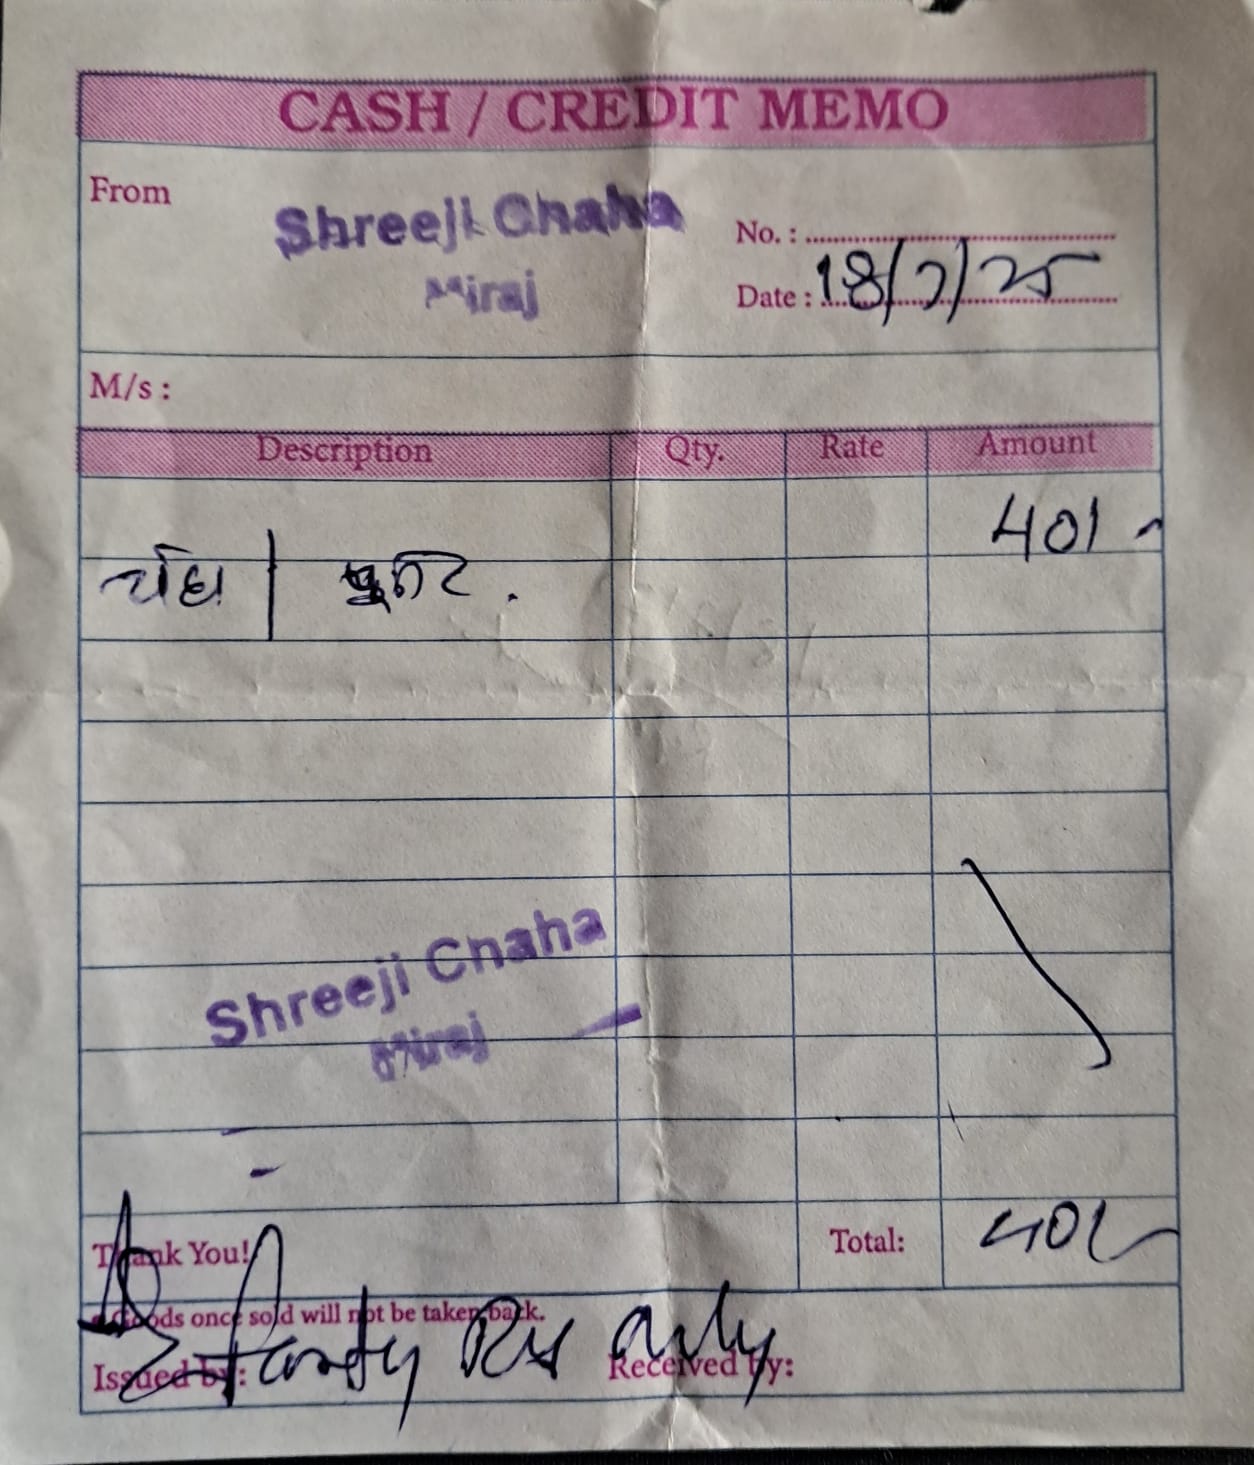 CASH / CREDIT MEMO
From
Shreeji Chaha
Miraj
No. :
Date : 18/7/25
M/s :
Description Qty. Rate Amount
40/-
चहा |
Shreeji Chaha
Miraj
Thank You!
Total: 40/-
Goods once sold will not be taken back.
Forty Rs only
Issued by: Received by: